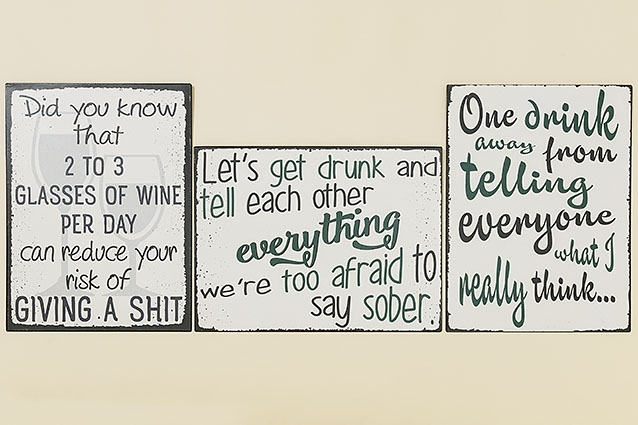 Did you know
that
2 TO 3
GLASSES OF WINE
PER DAY
can reduce your
risk of
GIVING A SHIT
Let's get drunk and
tell each other
everything
we're too afraid to
say sober.
One drink
away from
telling
everyone
what I
really think...